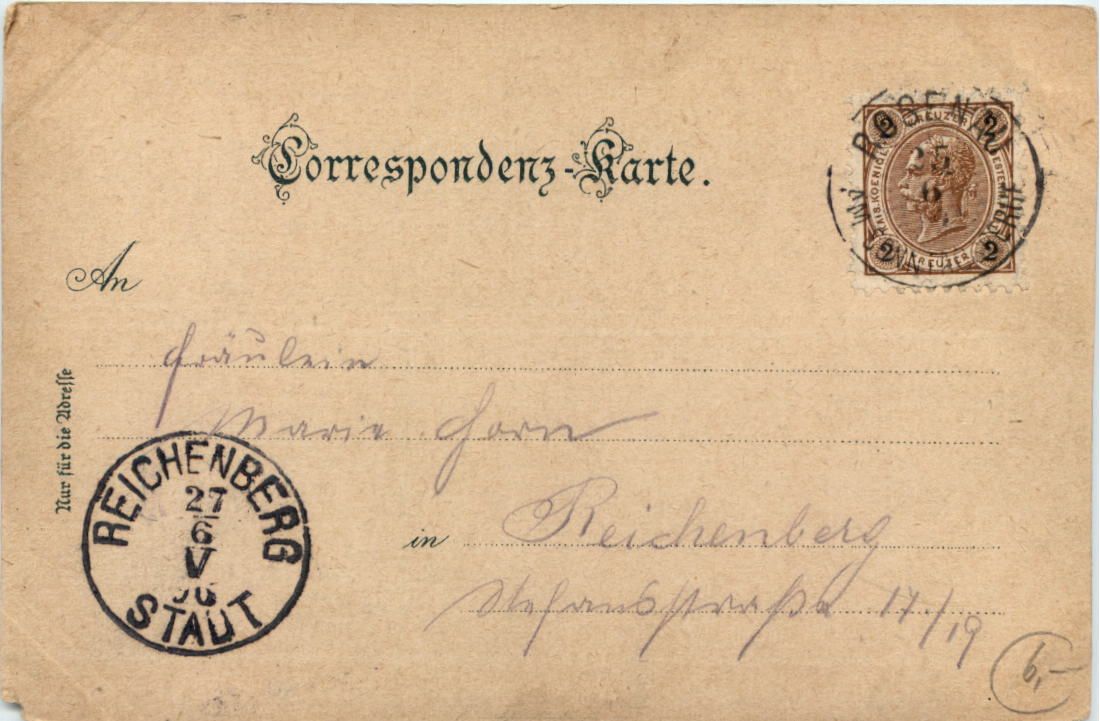 Correspondenz-Karte.
KREUZER
2 2
KAIS.KOENIGL.
2 2
KREUZER
25
6
An
Fräulein
Nur für die Adresse
Marie Horn
REICHENBERG
27
6
V
STADT
in Reichenberg
Stefansstraße 17/19
6,-